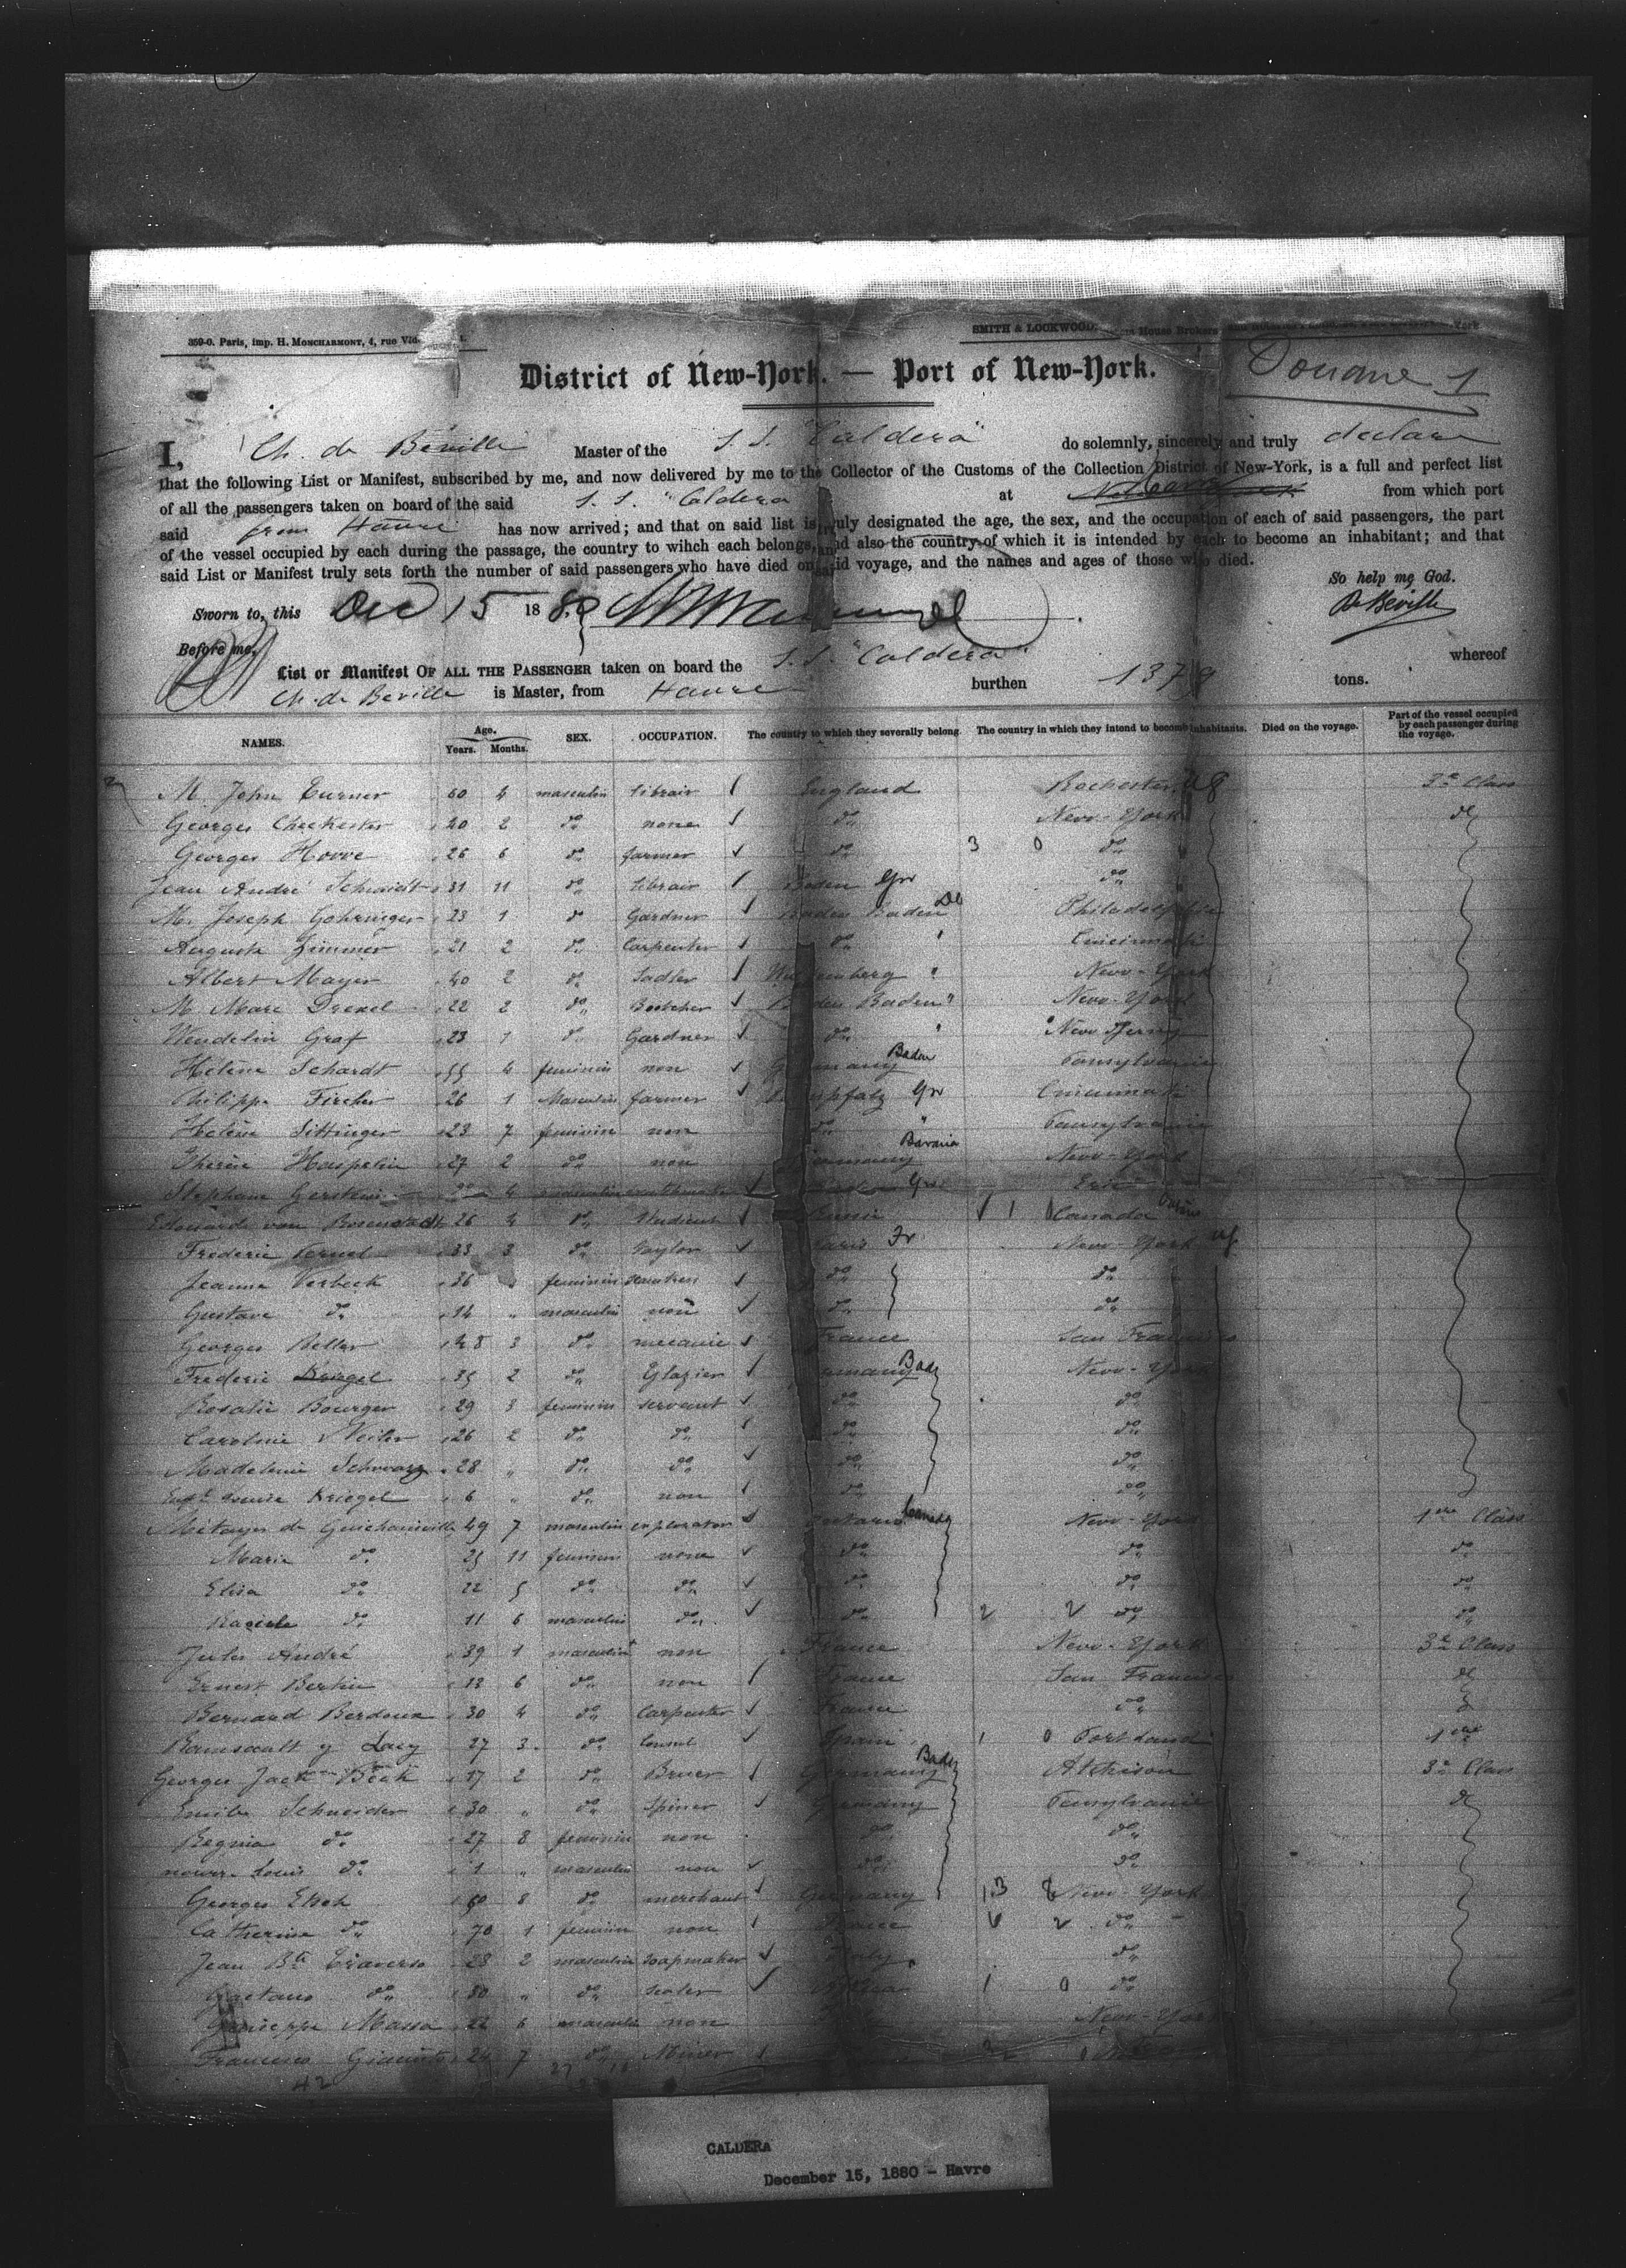 359-0. Paris, imp. H. MONCHARMONT, 4, rue
SMITH & LOCKWOOD. House Brokers
District of New-York. — Port of New-York.
Douane 1
I, Ch. de Béville Master of the S. S. "Caldera" do solemnly, sincerely and truly declare
that the following List or Manifest, subscribed by me, and now delivered by me to the Collector of the Customs of the Collection District of New-York, is a full and perfect list
of all the passengers taken on board of the said S. S. "Caldera at from which port
said from Havre has now arrived; and that on said list is truly designated the age, the sex, and the occupation of each of said passengers, the part
of the vessel occupied by each during the passage, the country to wihch each belongs, and also the country of which it is intended by each to become an inhabitant; and that
said List or Manifest truly sets forth the number of said passengers who have died on said voyage, and the names and ages of those who died.
So help me God.
De Béville
Sworn to, this Dec 15 1880
Before me,
List or Manifest OF ALL THE PASSENGER taken on board the S. S. "Caldera" whereof
Ch. de Beville is Master, from Havre burthen 1379 tons.
NAMES. Age. Years. Months. SEX. OCCUPATION. The country to which they severally belong. The country in which they intend to become inhabitants. Died on the voyage. Part of the vessel occupied by each passenger during the voyage.
M. John Turner 60 4 masculin librair England Rochester US 3e Class
Georges Checkester 20 2 do none do New-York do
Georges Howe 26 6 do farmer do 3 0 do
Jean André Schmidt 31 11 do librair Baden Gr do
M. Joseph Gohringer 23 1 do Gardner Baden Baden Philadelphia
Auguste Zimmer 21 2 do Carpenter do Cincinnati
Albert Mayer 40 2 do Sadler New-York
M. Marc Drexel 22 2 do Baden Baden " New-York
Wendelin Graf 23 1 do Gardner do " New Jersey
Hélène Schardt 55 4 feminin non Germany Baden Pansylvanie
Philippe Fischer 26 1 Masculin farmer Gr Cincinnati
Helène Sittinger 23 7 feminin non do " Pansylvanie
Therese Haspelin 27 2 do non Germany Bavaria New-York
Stephane Gerstein 4 masculin Gr Erié
Edouarde von Rosenstadt 26 4 do Student 1 Canada
Frederic Vernel 33 3 do taylor Paris Fr New-York US
Jeanne Verbeck 36 feminin do do
Gustave do 14 " masculin non do do
Georges Beller 48 3 do mecanic France San Francisco
Frederic Kriegel 35 2 do Glazier Germany Bad New-York
Rosalie Bourger 29 3 feminin servant do do
Caroline Weiler 26 2 do do do do
Madeleine Schwarz 28 " do do do do
Louise Kriegel 6 " do non do do
Métayer de Guichainville 49 7 masculin explorator Ontario Canada New-York 1ere Class
Marie do 25 11 feminin none do do do
Elisa do 22 5 do do do do do
do 11 6 masculin do do 2 2 do do
Jules André 39 1 masculin non France New-York 3e Class
Ernest Bertin 13 6 do non France San Francisco do
Bernard Berdoux 30 4 do Carpenter France do
y Lacy 27 3 do Consul Spain 1 0 Portland 1ere
Georges Jack Beck 17 2 do Bruer Germany Bad Atchison 3e Class
Emile Schneider 30 " do Spiner Germany Pensylvanie do
Regina do 27 8 feminin non do do
nourr. Louis do 1 " masculin non do do
Georges Esch 60 8 do merchant Germany New-York
Catherine do 70 1 feminin non France 6 2 do
Jean Bte Traverso 23 2 masculin soapmaker Italy do
Gaetano do 30 " do 1 0 do
Guiseppe Massa 22 6 masculin non New-York
Francesco Giacinto 24 7 do Miner
42
CALDERA
December 15, 1880 - Havre